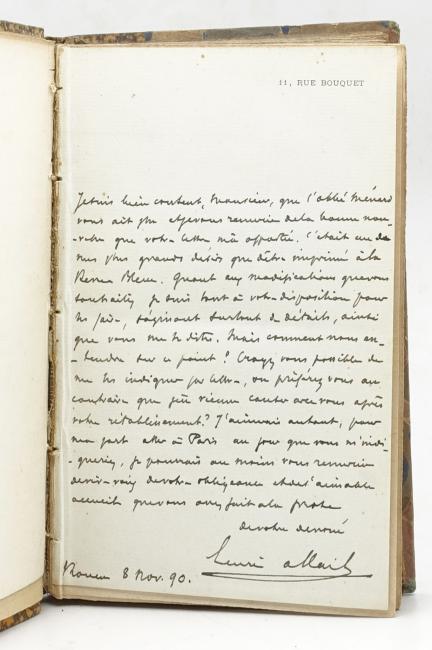 11, RUE BOUQUET
Je suis bien content, Monsieur, que l'abbé Ménard
vous ait plu et je vous remercie de la bonne nou-
-velle que votre lettre m'a apportée. C'était un de
mes plus grands désirs que d'être imprimé à la
Revue Bleue. Quant aux modifications que vous
souhaitez, je suis tout à votre disposition pour
les faire, s'agissant surtout de détails, ainsi
que vous me le dites. Mais comment nous en-
-tendre sur ce point ? Croyez vous possible de
me les indiquer par lettre, ou préférez vous au
contraire que j'aille vienne causer avec vous après
votre rétablissement ? J'aimerais autant, pour
ma part aller à Paris au jour que vous m'indi-
-queriez, je pourrais au moins vous remercier
de vive-voix de votre obligeance et de l'aimable
accueil que vous avez fait à la prose
de votre dévoué
Henri Allais
Rouen 8 Nov. 90.